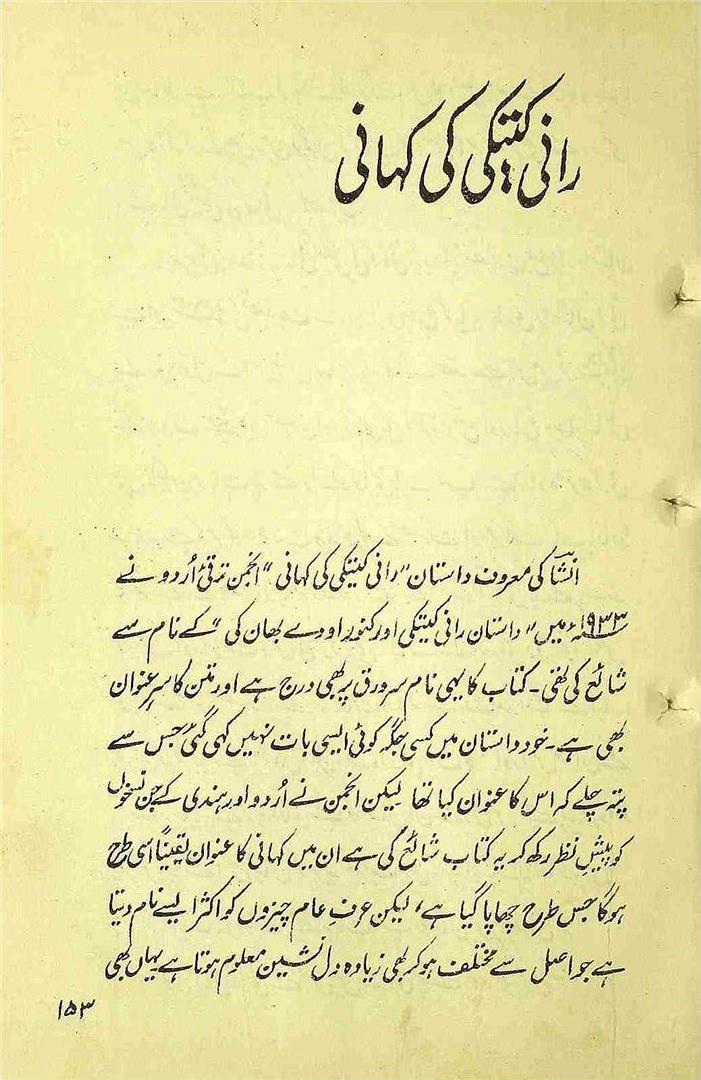 رانی کیتکی کی کہانی
انشاؔ کی معروف داستان "رانی کیتکی کی کہانی" انجمن ترقیٔ اُردو نے
۱۹۳۳ء میں "داستان رانی کیتکی اور کنور اودے بھان کی" کے نام سے
شائع کی تھی۔ کتاب کا یہی نام سرورق پر بھی درج ہے اور متن کا سرِ عنوان
بھی ہے۔ خود داستان میں کسی جگہ کوئی ایسی بات نہیں کہی گئی جس سے
پتہ چلے کہ اس کا عنوان کیا تھا لیکن انجمن نے اُردو اور ہندی کے جن نسخوں
کو پیشِ نظر رکھ کر یہ کتاب شائع کی ہے ان میں کہانی کا عنوان یقیناً اسی طرح
ہوگا جس طرح چھاپا گیا ہے، لیکن عرفِ عام چیزوں کو اکثر ایسے نام دیتا
ہے جو اصل سے مختلف ہو کر بھی زیادہ دل نشین معلوم ہوتا ہے یہاں بھی
۱۵۳